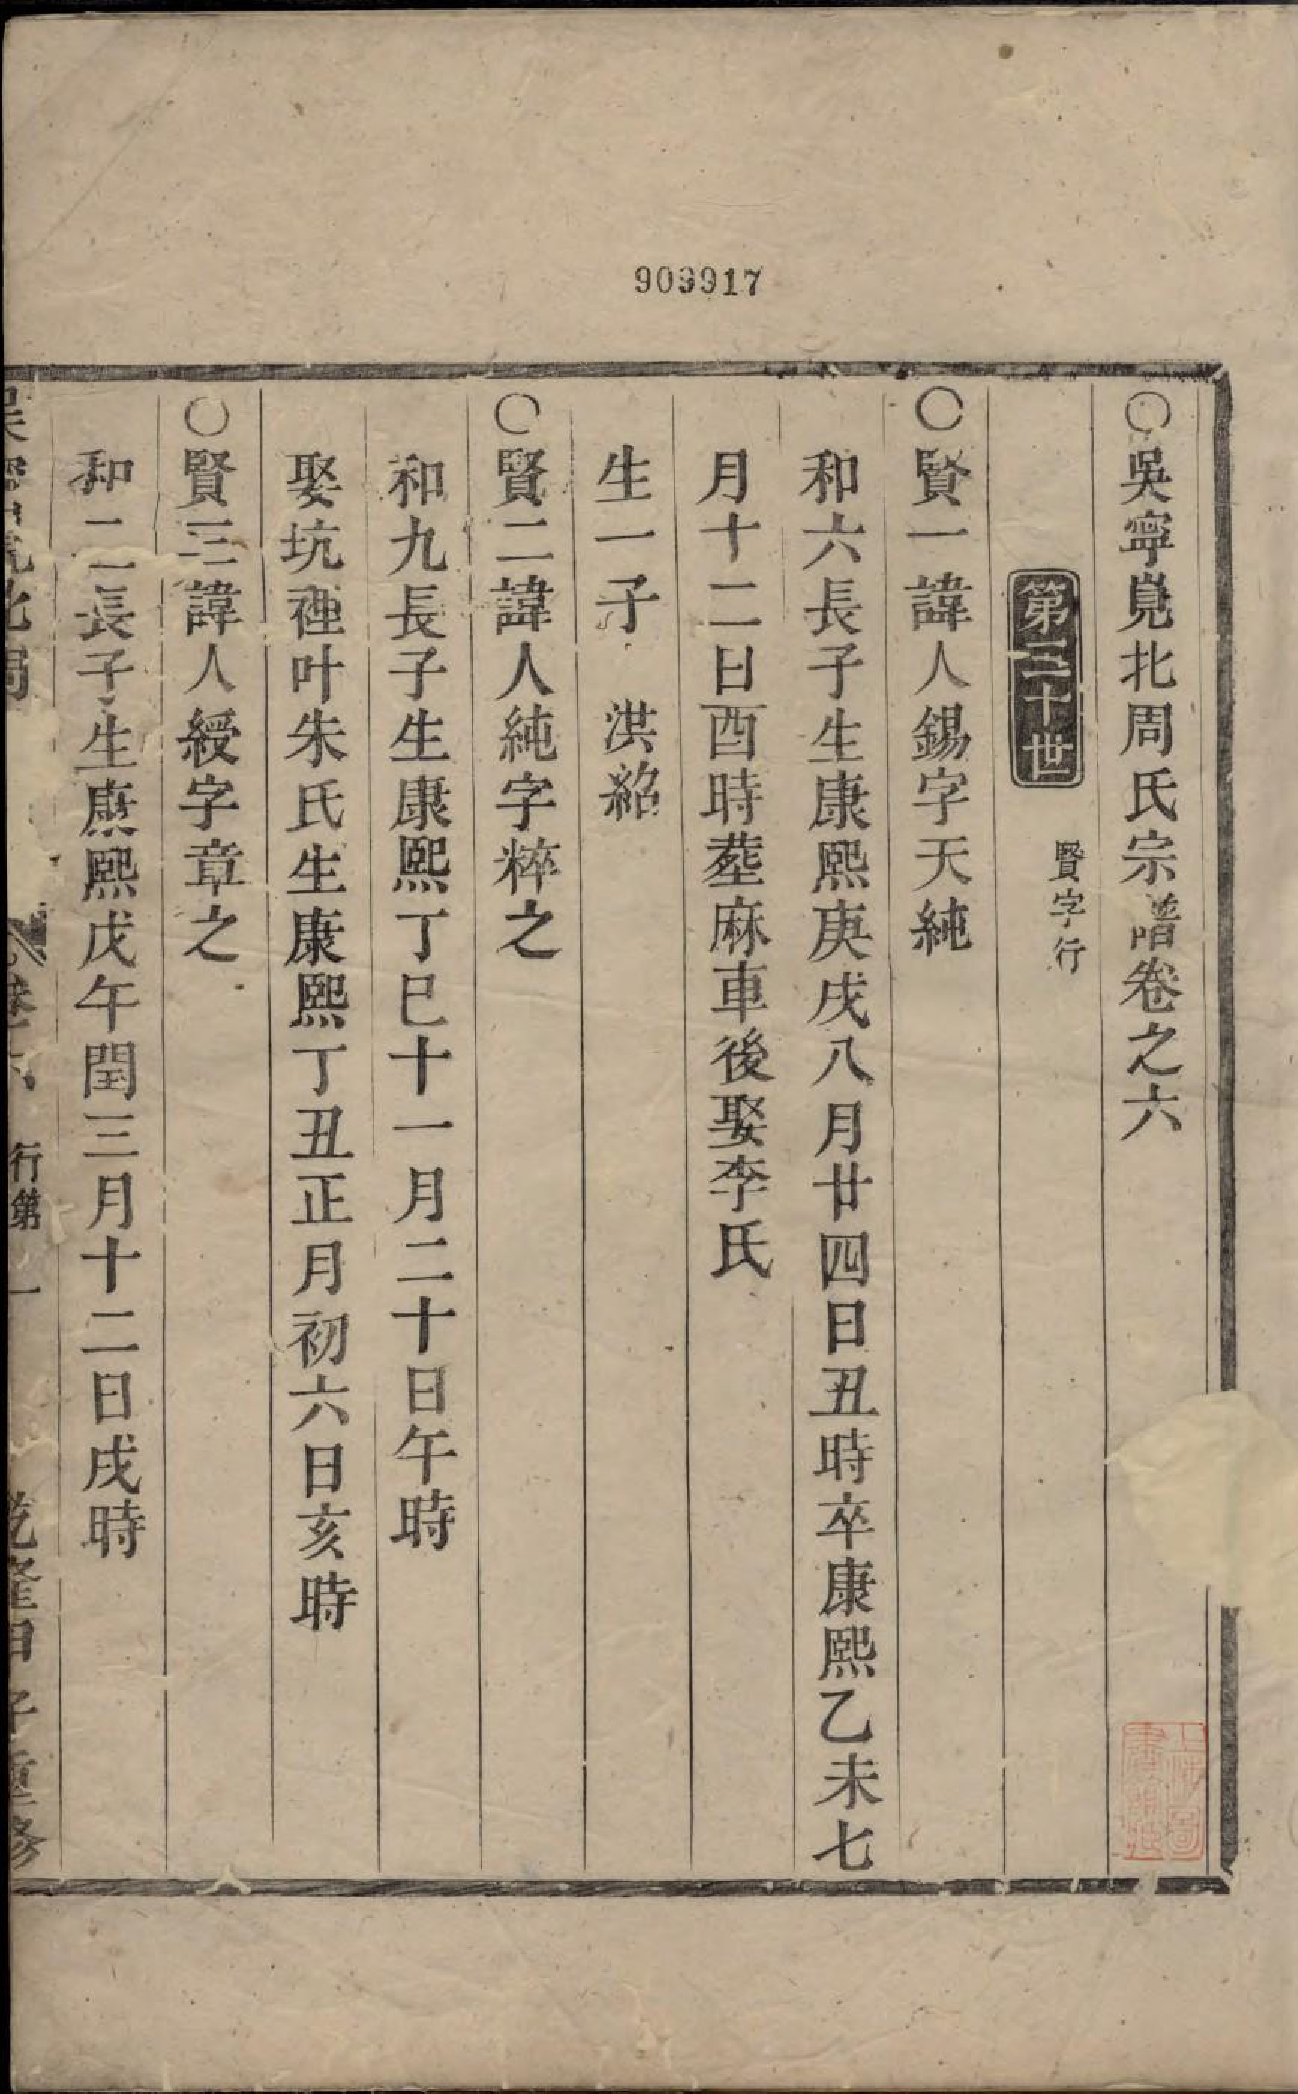 909917
〇吳寧峴北周氏宗譜卷之六
第二十世
賢字行
〇賢一諱人錫字天純
和六長子生康熙庚戌八月廿四日丑時卒康熙乙未七
月十二日酉時塟麻車後娶李氏
生一子 洪綸
〇賢二諱人純字粹之
和九長子生康熙丁巳十一月二十日午時
娶坑𥚃叶朱氏生康熙丁丑正月初六日亥時
〇賢三諱人綬字章之
和二長子生康熙戊午閏三月十二日戌時
卷六 行第 一 乾隆甲子重修